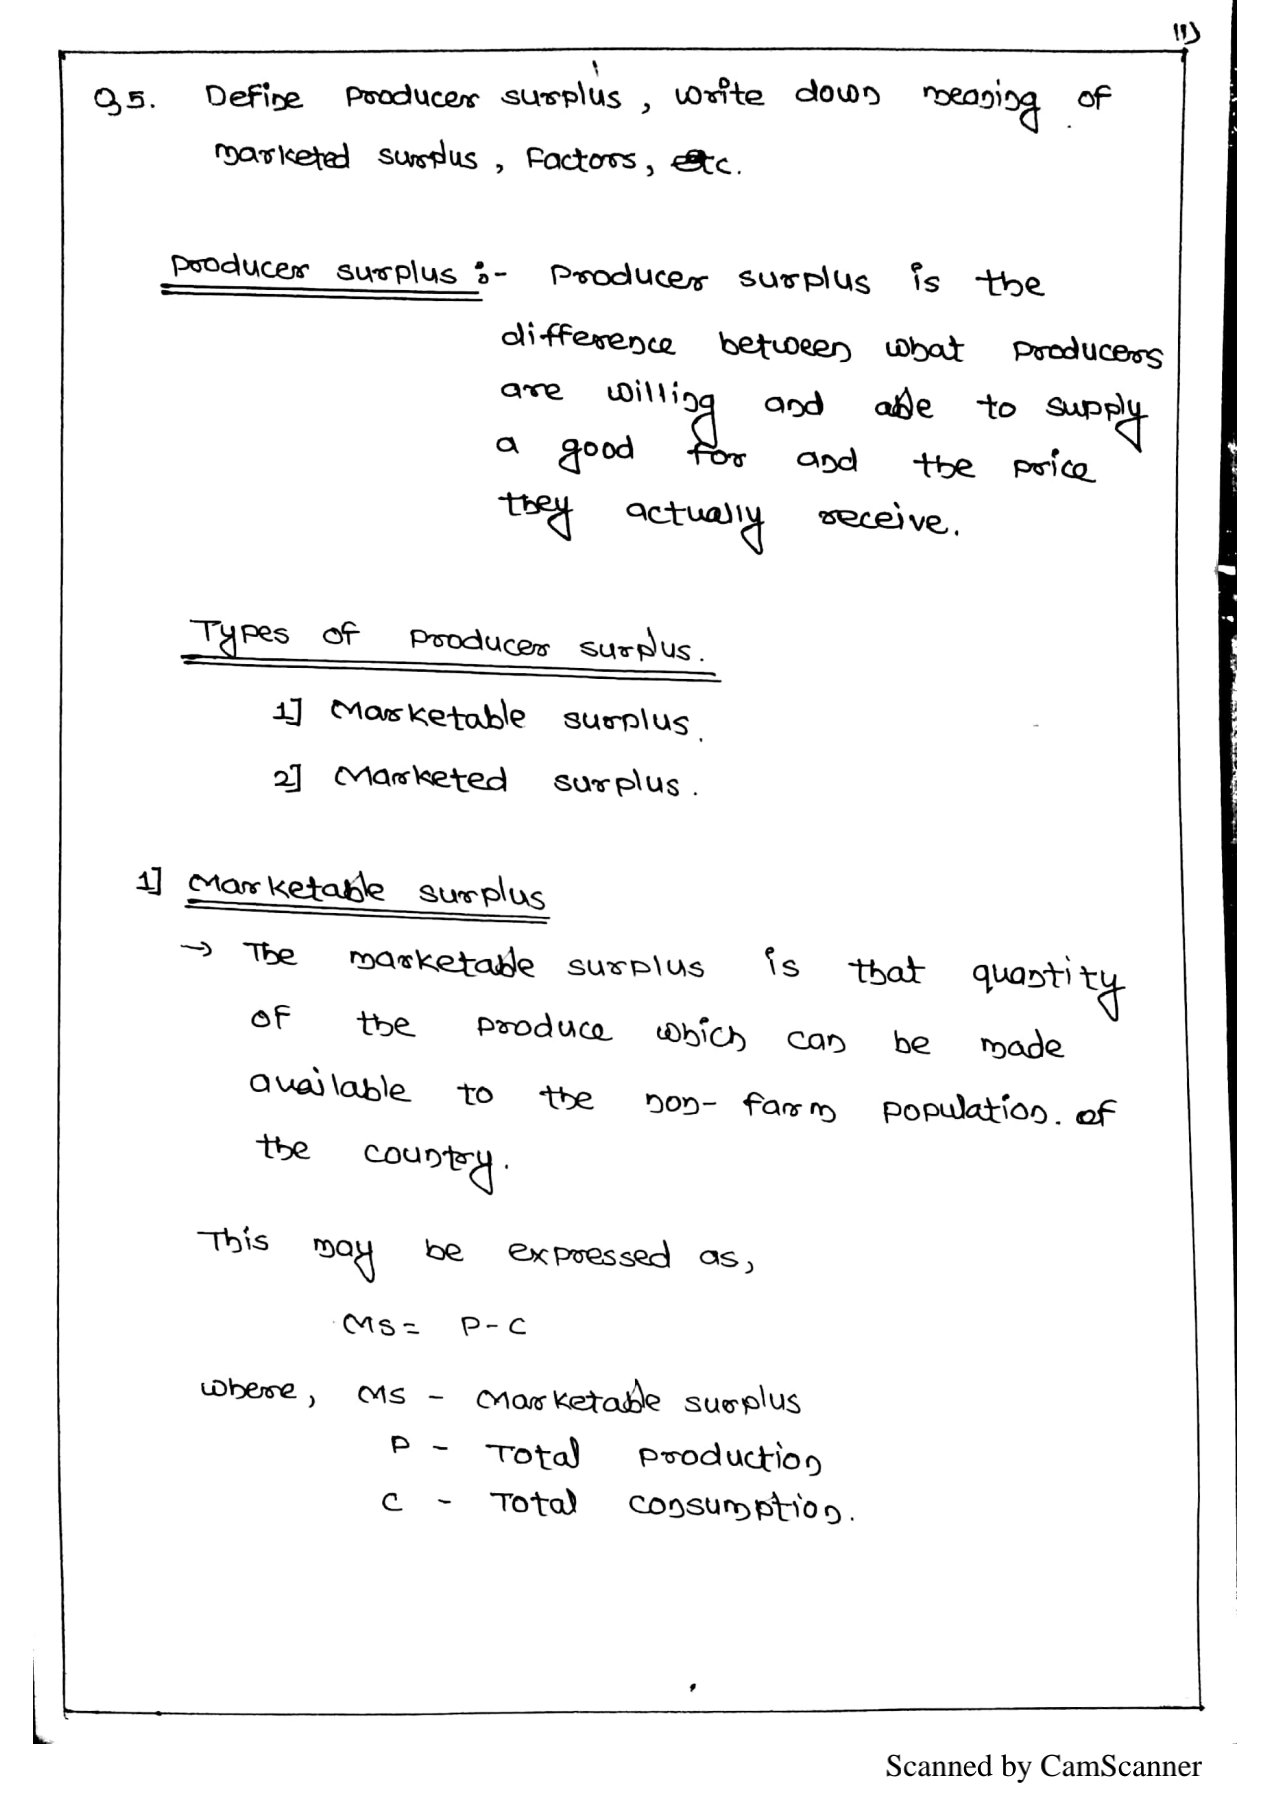 11)
Q5. Define producer surplus, write down meaning of
marketed surplus, factors, etc.
producer surplus :- producer surplus is the
difference between what producers
are willing and able to supply
a good for and the price
they actually receive.
Types of producer surplus.
1] Marketable surplus.
2] Marketed surplus.
1] Marketable surplus
→ The marketable surplus is that quantity
of the produce which can be made
available to the non-farm population. of
the country.
This may be expressed as,
MS = P - C
where, MS - Marketable surplus
P - Total production
C - Total consumption.
Scanned by CamScanner